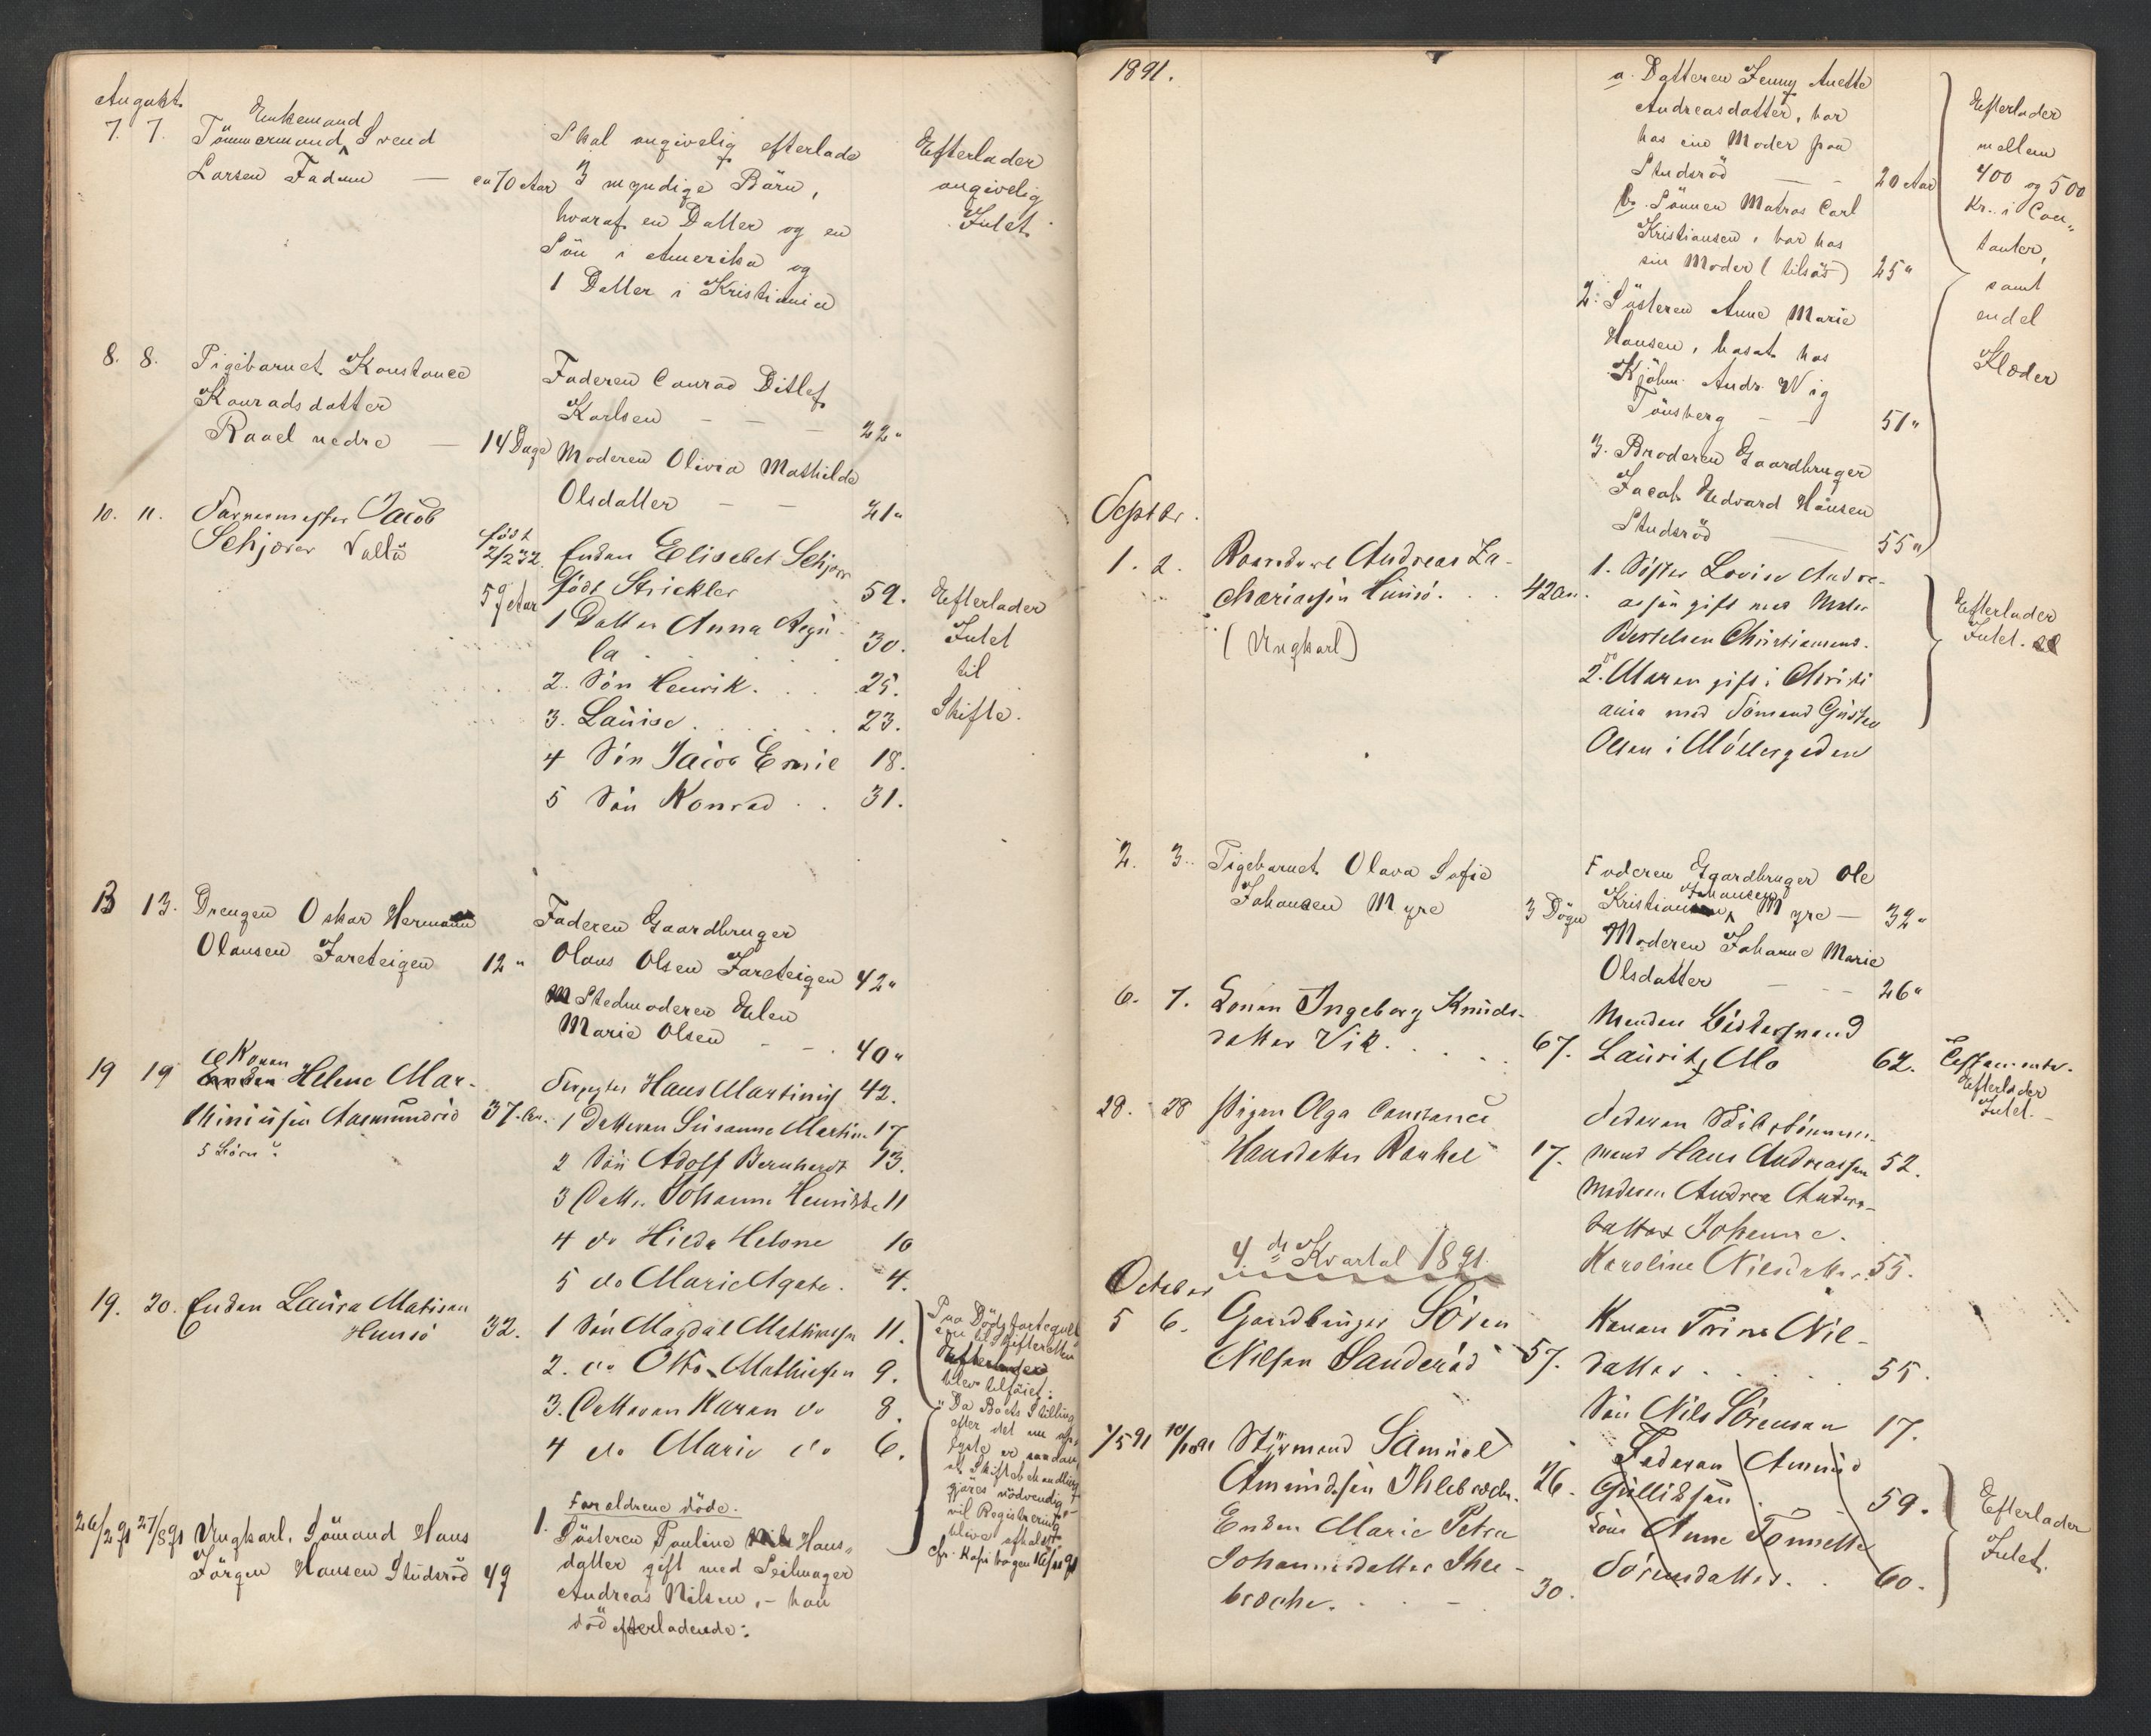 August
7. 7. Enkemand
Tömmermand Svend
Larsen Fadum — ca 70 Aar
Skal angivelig efterlade
3 myndige Börn,
hvoraf en Datter og en
Sön i Amerika og
1 Datter i Kristiania
Efterlader
angivelig
Intet.
8. 8. Pigebarnet Konstance
Konradsdatter
Raael nedre — 14 Dage
Faderen Conrad Ditlef
Karlsen — — — 22"
Moderen Olivia Mathilde
Olsdatter — — 21"
10. 11. Farvermester Jacob
Schjorer Vallö
født
2/2 32.
59 Aar
Enken Elisebet Schjorr
födt Strickler 59.
1 Datter Anna Regü-
la . . . . . 30.
2. Sön Henrik. . . 25.
3. Lauise. . . . . 23.
4 Sön Jacob Emil 18.
5 Sön Konrad . . 31.
Efterlader
Intet
til
Skifte.
13 13. Drengen Oskar Hermann
Olausen Jareteigen 12"
Faderen Gaardbruger
Olaus Olsen Jareteigen 42"
Stedmoderen Elen
Marie Olsen — — . 40"
19 19 Konen
Helene Mar-
thiniusen Aasmundröd 37. Aar.
5 Börn
Hans Martinius 42.
1 Datteren Susanne Martine 17
2 Sön Adolf Bernhardt 13.
3 Datter Johanne Henrikke 11
4 do Hilda Helene 10
5 do Marie Agate. 4.
19. 20. Enken Laura Matisen
Husö 32.
1 Sön Magdal Mathiasen 11.
2. do Otto Mathiesen 9.
3. Datteren Karen do 8.
4 do Marie do 6.
Paa Dödsfortegnel
sen til Skifteretten
Efterlader
blev tilföiet:
"Da Boets Stilling
efter det nu op-
lyste er saadan,
at Skiftebehandling
gjöres nödvendig,
vil Registrering
blive afholdt"
cfr. Kopibogen 16/10 91
26/2 91 27/8 91 Ungkarl, Sömand Hans
Jörgen Hansen Studsröd 49
Forældrene döde.
1. Sösteren Pauline Hans-
datter gift med Seilmager
Andreas Nilsen, — han
död efterladende:
1891.
a. Datteren Jenny Anette
Andreasdatter, bor
hos sin Moder paa
Studsröd — — 20 Aar
b. Sönnen Matros Carl
Kristiansen, bor hos
sin Moder (tilsös) 25"
2. Sösteren Anne Marie
Hansen, bosat hos
Kjöbm. Andr. Wig
Tönsberg — — 51"
3. Broderen Gaardbruger
Jacob Edvard Hansen
Studsröd — 55"
Efterlader
mellem
400 og 500
Kr. i Con-
tanter,
samt
endel
Klæder
Septbr.
1. 2. Andreas Za-
chariasen Husö. . . 42 Aar.
(Ungkarl)
1. Söster Lovise Andre-
assen gift med
Bertelsen Christiansund.
2. do Maren gift i Christi
ania med Sömand Gustav
Olsen i Möllergaden
Efterlader
Intet.
2. 3. Pigebarnet Olava Sofie
Johansen Myre 3 Dögn
Faderen Gaardbruger Ole
Johansen
Kristian Myre — 32"
Moderen Johanne Marie
Olsdatter — — 26"
6. 7. Konen Ingeborg Knuds-
datter Vik. . . . . 67.
Manden
Lauritz Mo 62.
Testamente.
Efterlader
Intet. —
28. 28 Pigen Olga Constance
Hansdatter Ranhel 17.
Faderen Skibstömmer-
mand Hans Andreassen 52.
Moderen Andrea Anders-
datter Johanne.
Karoline Nilsdatter. 55.
4. de Kvartal 1891.
October
5 6. Gaardbruger Sören
Nilsen Sanderöd 57.
Konen Trine Nils-
datter . . . . . 55.
Sön Nils Sörensen 17.
1/5 91 10/10 91 Styrmand Samuel
Amundsen Ihlebroche. 26.
Enken Marie Petra
Johannesdatter Ihle-
broche. . . — . 30.
Faderen Amund
Gulliksen . — . 59.
Anne Tonnette
Sörensdatter. . 60.
Efterlader
Intet.